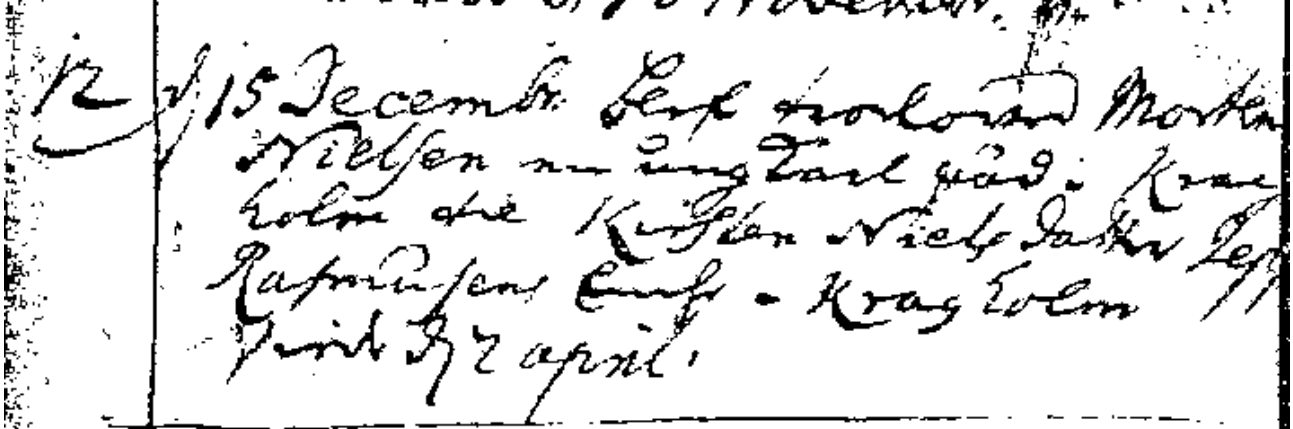 November.
12 d 15 Decembr. blef trolovet Morten
Nielsen en ung Karl på i Krag
holm til Kirsten Niels datter Jep
Rasmusens Enke i Kragholm
viet d 2 april.